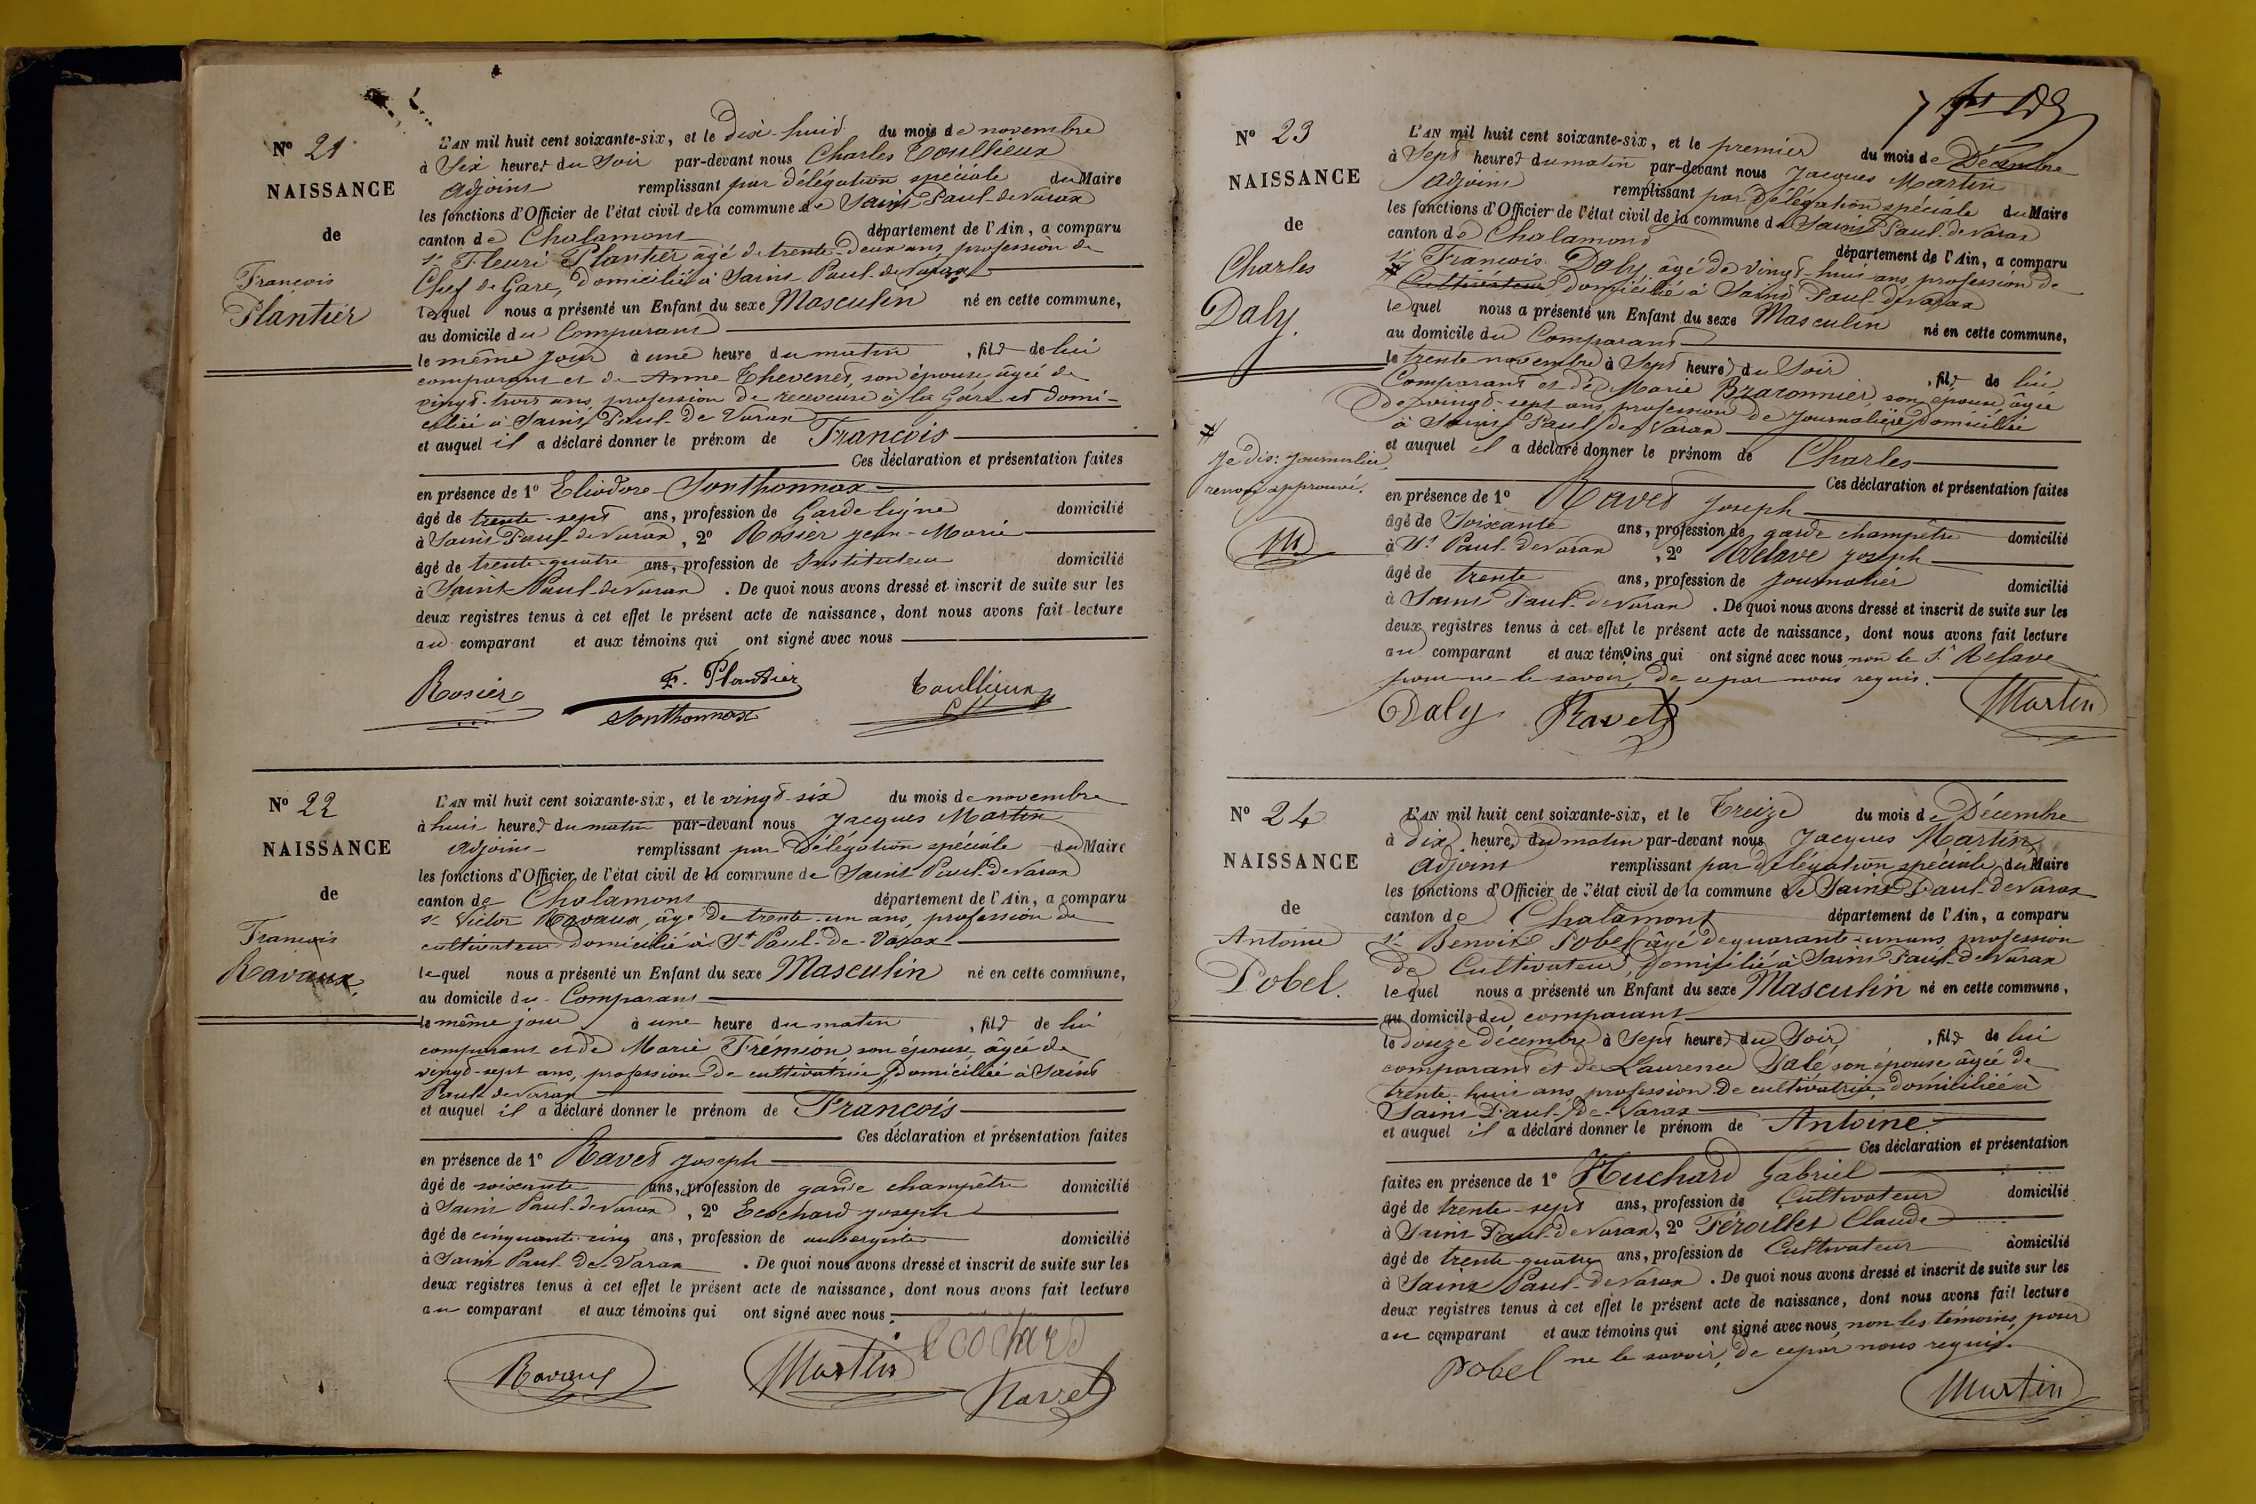 N° 21
NAISSANCE
de
François
Plantier
L'AN mil huit cent soixante-six, et le dix-huit du mois de novembre
à Six heures du Soir par-devant nous Charles Toullieux
Adjoint remplissant par délégation spéciale du Maire
les fonctions d'Officier de l'état civil de la commune de Saint Paul-de Varax
canton de Chalamont département de l'Ain, a comparu
sr Fleuri Plantier âgé de trente-deux ans, profession de
Chef de Gare, domicilié à Saint-Paul-de Varax
lequel nous a présenté un Enfant du sexe Masculin né en cette commune,
au domicile du Comparant
le même jour à une heure du matin, fils de lui
comparant et de Anne Thevenet, son épouse, âgée de
vingt-trois ans, profession de receveuse à la Gare et domi-
ciliée à Saint Paul-de Varax
et auquel il a déclaré donner le prénom de François
Ces déclaration et présentation faites
en présence de 1° Eliodore Sonthonnax
âgé de trente-sept ans, profession de Garde ligne domicilié
à Saint Paul de Varax, 2° Rosier Jean-Marie
âgé de trente-quatre ans, profession de Instituteur domicilié
à Saint-Paul-de Varax. De quoi nous avons dressé et inscrit de suite sur les
deux registres tenus à cet effet le présent acte de naissance, dont nous avons fait lecture
au comparant et aux témoins qui ont signé avec nous
Rosier F. Plantier Toullieux
Sonthonnax
N° 22
NAISSANCE
de
François
Ravaux.
L'AN mil huit cent soixante-six, et le vingt-six du mois de novembre
à huit heures du matin par-devant nous Jacques Martin
Adjoint remplissant par Délégation spéciale du Maire
les fonctions d'Officier de l'état civil de la commune de Saint-Paul-de Varax
canton de Chalamont département de l'Ain, a comparu
sr Victor Ravaux, âgé de trente-un ans, profession de
cultivateur domicilié à St Paul-de-Varax
lequel nous a présenté un Enfant du sexe Masculin né en cette commune,
au domicile du Comparant
le même jour à une heure du matin, fils de lui
comparant et de Marie Frémion, son épouse âgée de
vingt-sept ans, profession de cultivatrice, domiciliée à Saint
Paul-de Varax
et auquel il a déclaré donner le prénom de François
Ces déclaration et présentation faites
en présence de 1° Ravet Joseph
âgé de soixante ans, profession de garde champêtre domicilié
à Saint Paul-de Varax, 2° Ecochard Joseph
âgé de cinquante-cinq ans, profession de aubergiste domicilié
à Saint Paul-de-Varax. De quoi nous avons dressé et inscrit de suite sur les
deux registres tenus à cet effet le présent acte de naissance, dont nous avons fait lecture
au comparant et aux témoins qui ont signé avec nous.
Ecochard
Ravaux Martin
Ravet
N° 23
NAISSANCE
de
Charles
Daly.
Je dis: journalier,
renvoi approuvé.
L'AN mil huit cent soixante-six, et le premier du mois de Décembre
à Sept heures du matin par-devant nous Jacques Martin
Adjoint remplissant par Délégation spéciale du Maire
les fonctions d'Officier de l'état civil de la commune de Saint Paul-de Varax
canton de Chalamont département de l'Ain, a comparu
sr François Daly, âgé de vingt-huit ans, profession de
Cultivateur, domicilié à Saint Paul-de Varax
lequel nous a présenté un Enfant du sexe Masculin né en cette commune,
au domicile du Comparant
le trente novembre à Sept heures du Soir, fils de lui
Comparant et de Marie Brazonnier, son épouse âgée
de vingt-sept ans, profession de journalière, domiciliée
à Saint Paul-de Varax
et auquel il a déclaré donner le prénom de Charles
Ces déclaration et présentation faites
en présence de 1° Ravet Joseph
âgé de Soixante ans, profession de garde champêtre domicilié
à St Paul-de Varax, 2° Relave Joseph
âgé de trente ans, profession de journalier domicilié
à Saint Paul-de Varax. De quoi nous avons dressé et inscrit de suite sur les
deux registres tenus à cet effet le présent acte de naissance, dont nous avons fait lecture
au comparant et aux témoins qui ont signé avec nous, non le Sr Relave
pour ne le savoir, de ce par nous requis.
Daly Ravet Martin
N° 24
NAISSANCE
de
Antoine
Pobel.
L'AN mil huit cent soixante-six, et le Treize du mois de Décembre
à dix heures du matin par-devant nous Jacques Martin
Adjoint remplissant par délégation spéciale du Maire
les fonctions d'Officier de l'état civil de la commune de Saint Paul-de Varax
canton de Chalamont département de l'Ain, a comparu
sr Benoit Pobel, âgé de quarante-un ans, profession
de Cultivateur, domicilié à Saint Paul-de Varax
lequel nous a présenté un Enfant du sexe Masculin né en cette commune,
au domicile du comparant
le douze décembre à Sept heures du Soir, fils de lui
comparant et de Laurence Salé son épouse âgée de
trente-huit ans, profession de cultivatrice, domiciliée à
Saint Paul-de-Varax
et auquel il a déclaré donner le prénom de Antoine.
Ces déclaration et présentation
faites en présence de 1° Huchard Gabriel
âgé de trente-sept ans, profession de Cultivateur domicilié
à Saint Paul-de Varax, 2° Férolles Claude
âgé de trente-quatre ans, profession de Cultivateur domicilié
à Saint Paul-de Varax. De quoi nous avons dressé et inscrit de suite sur les
deux registres tenus à cet effet le présent acte de naissance, dont nous avons fait lecture
au comparant et aux témoins qui ont signé avec nous, non les témoins, pour
ne le savoir, de ce par nous requis.
Pobel
Martin